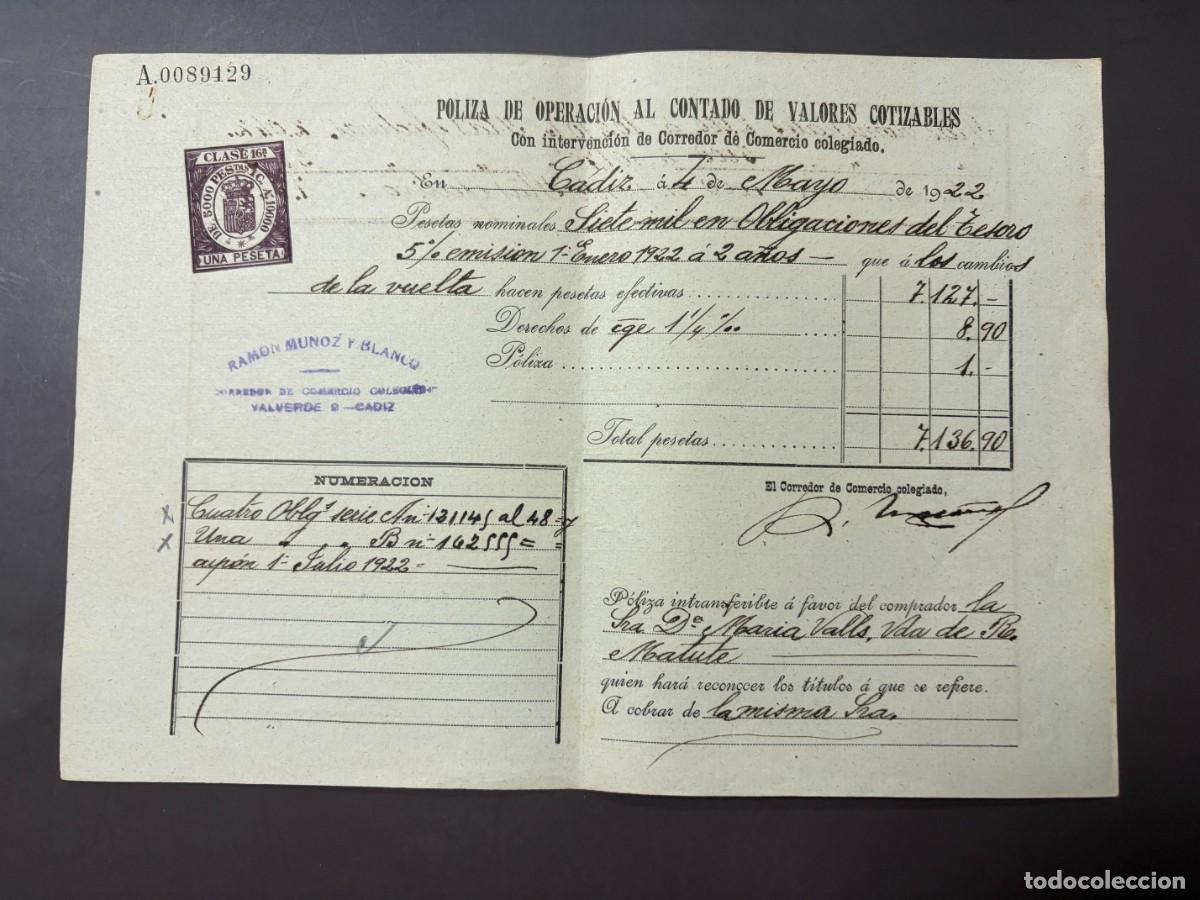 A.0089129
POLIZA DE OPERACIÓN AL CONTADO DE VALORES COTIZABLES
Con intervención de Corredor de Comercio colegiado.
CLASE 16ª
DE 5000 PESTAS 1 C. A 10000
UNA PESETA
En Cádiz á 4 de Mayo de 1922
Pesetas nominales Siete mil en Obligaciones del Tesoro
5% emision 1º Enero 1922 á 2 años — que á los cambios
de la vuelta hacen pesetas efectivas 7.127.-
Derechos de cge 1 1/4 ‰ 8.90
Póliza 1.-
Total pesetas 7.136.90
RAMON MUÑOZ Y BLANCO
CORREDOR DE COMERCIO COLEGIADO
VALVERDE 9 - CADIZ
NUMERACION
x Cuatro Oblgs serie A nº 131145 al 48 = y
x Una " " B nº 162555 = =
cupón 1º Julio 1922 =
El Corredor de Comercio colegiado,
R. Muñoz
Póliza intransferible á favor del comprador la
Sra Dª Maria Valls, Vda de R.
Matute
quien hará reconocer los títulos á que se refiere.
A cobrar de la misma Sra.
todocoleccion